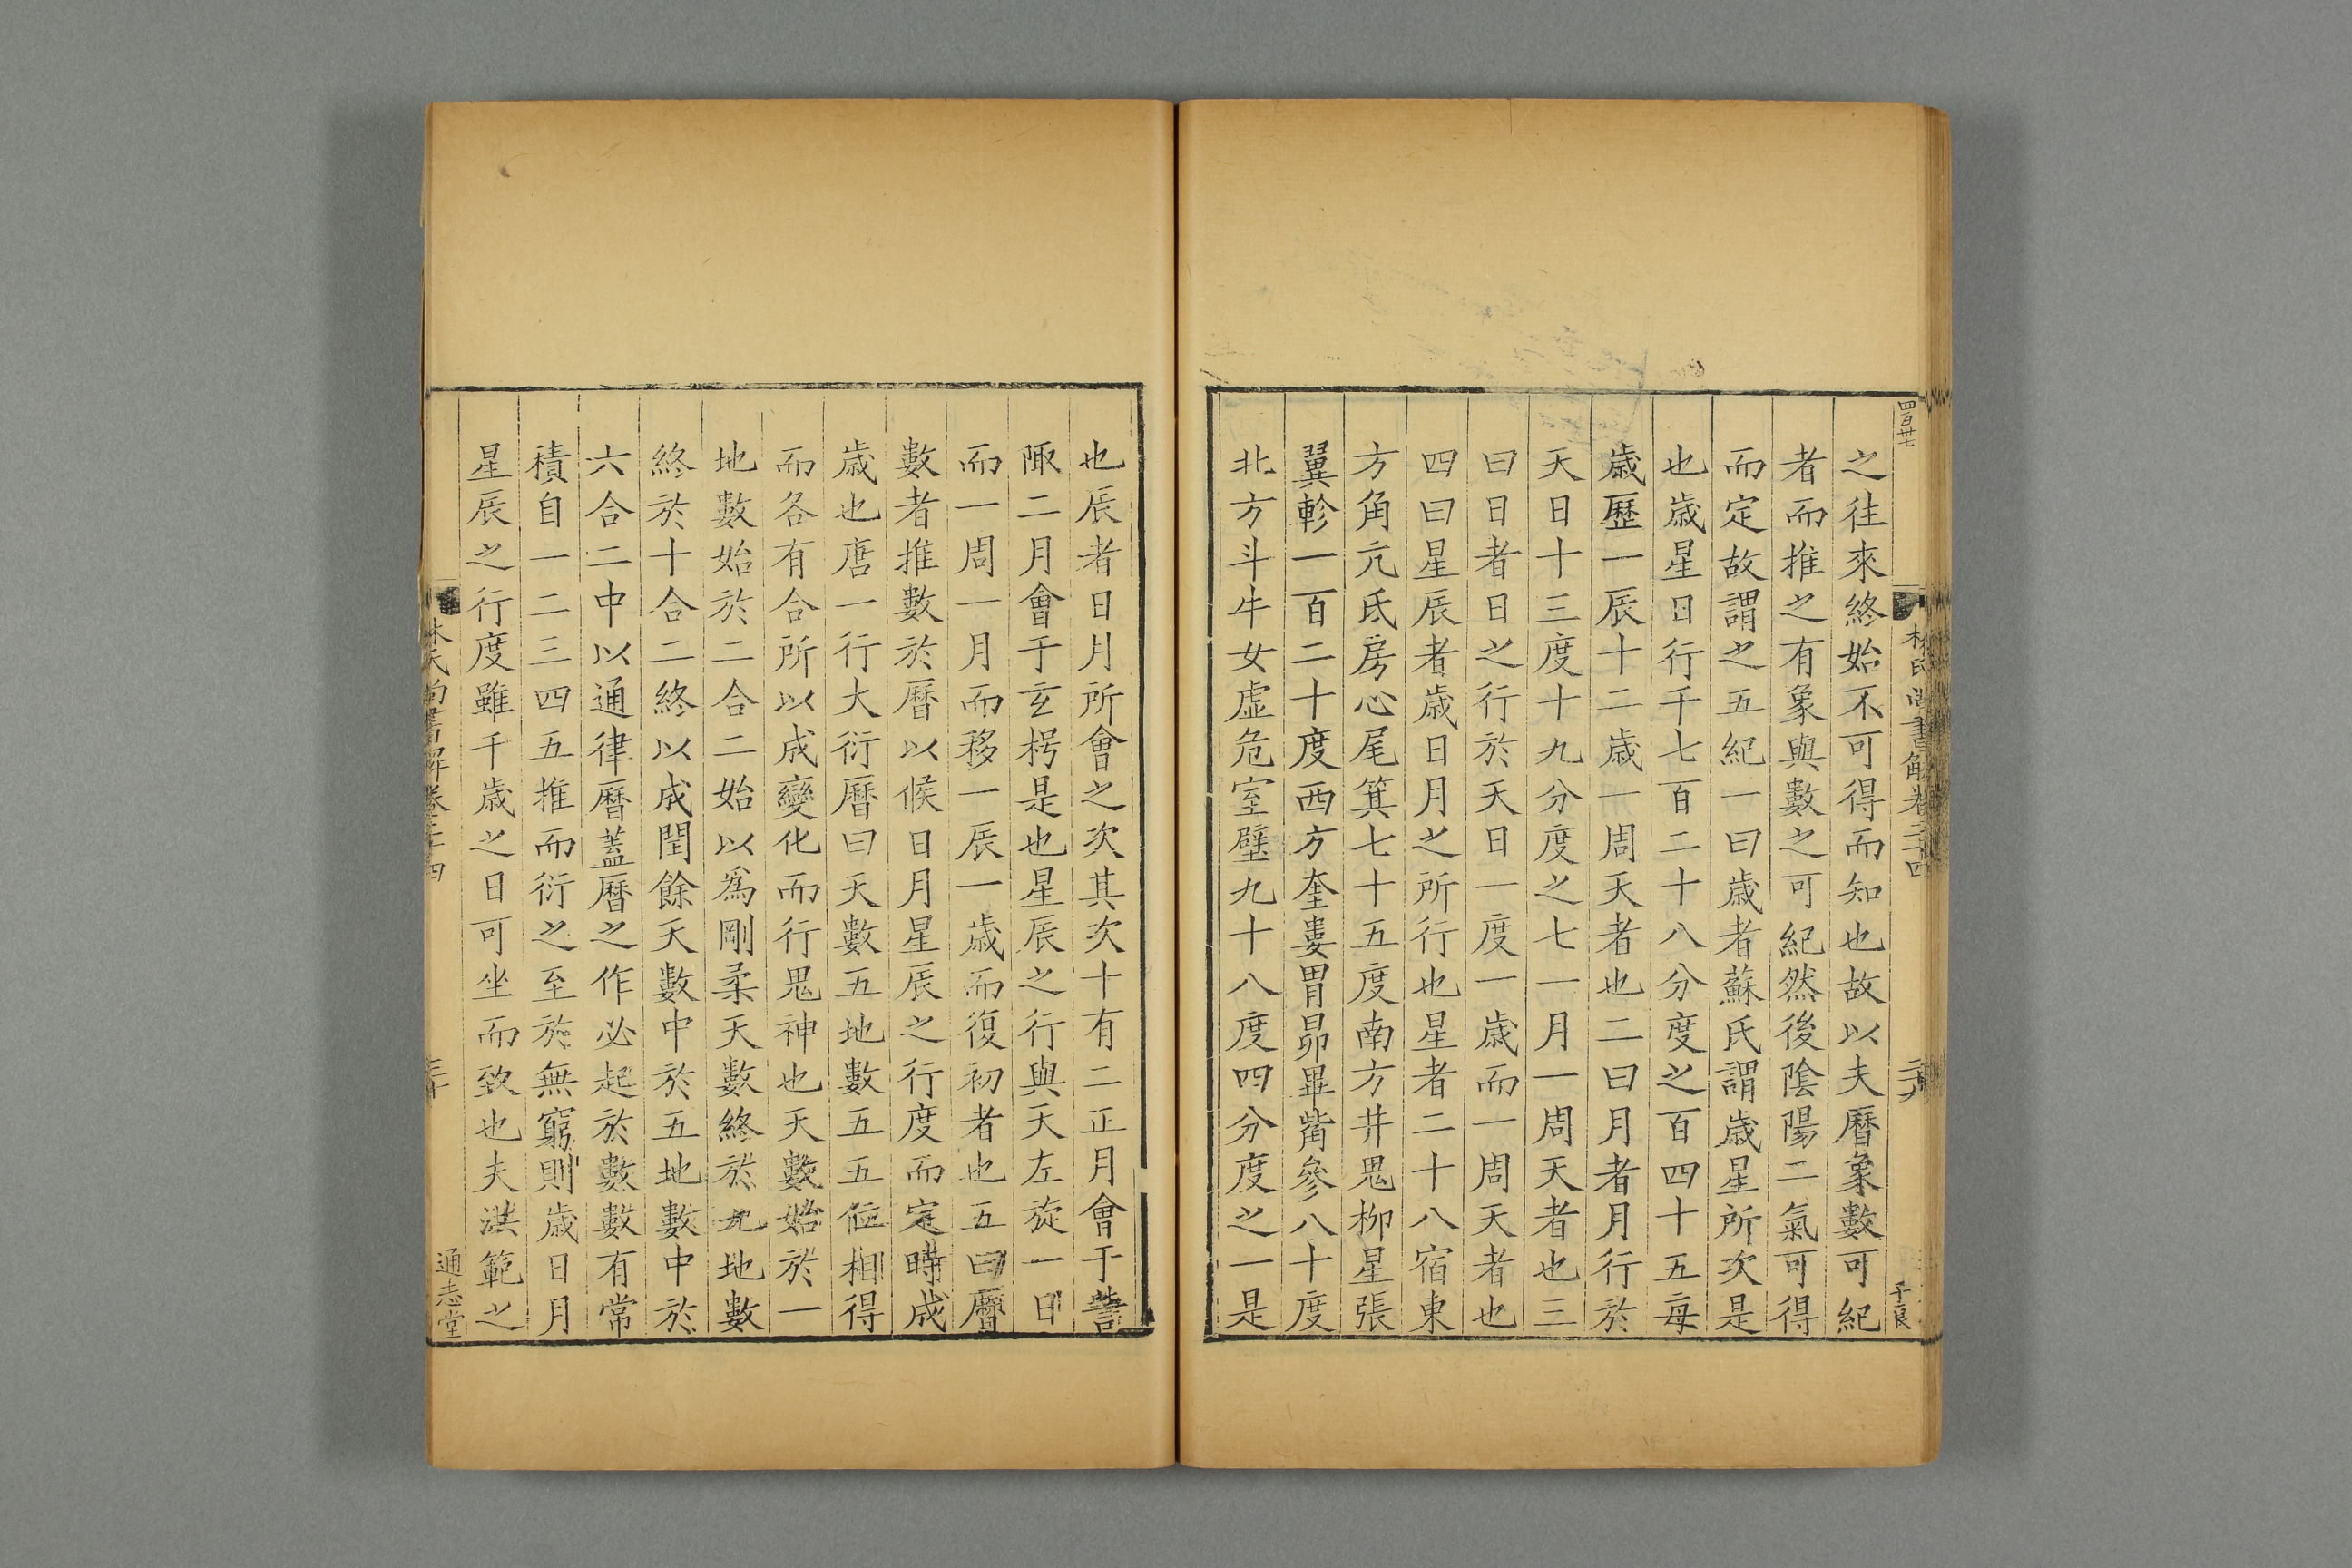 四百卄七
林氏尚書解卷二十四
二十九
于良
之往來終始不可得而知也故以夫曆象數可紀
者而推之有象與數之可紀然後陰陽二氣可得
而定故謂之五紀一曰歲者蘇氏謂歲星所次是
也歲星日行千七百二十八分度之百四十五每
歲歷一辰十二歲一周天者也二曰月者月行於
天日十三度十九分度之七一月一周天者也三
曰日者日之行於天日一度一歲而一周天者也
四曰星辰者歲日月之所行也星者二十八宿東
方角亢氐房心尾箕七十五度南方井鬼柳星張
翼軫一百二十度西方奎婁胃昴畢觜參八十度
北方斗牛女虛危室壁九十八度四分度之一是
也辰者日月所會之次其次十有二正月會于訾
陬二月會于玄枵是也星辰之行與天左旋一日
而一周一月而移一辰一歲而復初者也五曰曆
數者推數於曆以候日月星辰之行度而定時成
歲也唐一行大衍曆曰天數五地數五五位相得
而各有合所以成變化而行鬼神也天數始於一
地數始於二合二始以爲剛柔天數終於九地數
終於十合二終以成閏餘天數中於五地數中於
六合二中以通律曆蓋曆之作必起於數數有常
積自一二三四五推而衍之至於無窮則歲日月
星辰之行度雖千歲之日可坐而致也夫洪範之
林氏尚書解卷二十四
三十
通志堂